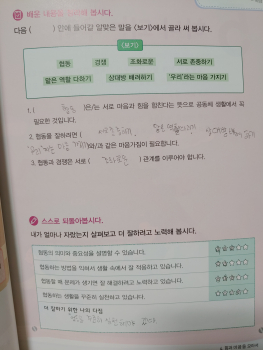 배운 내용을 정리해 봅시다.
다음 (        ) 안에 들어갈 알맞은 말을 <보기>에서 골라 써 봅시다.
<보기>
협동 경쟁 조화로운 서로 존중하기
맡은 역할 다하기 상대방 배려하기 '우리'라는 마음 가지기
1. ( 협동 )은(는) 서로 마음과 힘을 합친다는 뜻으로 공동체 생활에서 꼭
필요한 것입니다.
2. 협동을 잘하려면 ( 서로 존중하기, 맡은 역할 다하기, 상대방 배려하기
'우리'라는 마음 가지기 )와/과 같은 마음가짐이 필요합니다.
3. 협동과 경쟁은 서로 ( 조화로운 ) 관계를 이루어야 합니다.
스스로 되돌아봅시다.
내가 얼마나 자랐는지 살펴보고 더 잘하려고 노력해 봅시다.
협동의 의미와 중요성을 설명할 수 있습니다.
협동하는 방법을 익혀서 생활 속에서 잘 적용하고 있습니다.
협동할 때 문제가 생기면 잘 해결하려고 노력하고 있습니다.
협동하는 생활을 꾸준히 실천하고 있습니다.
더 잘하기 위한 나의 다짐